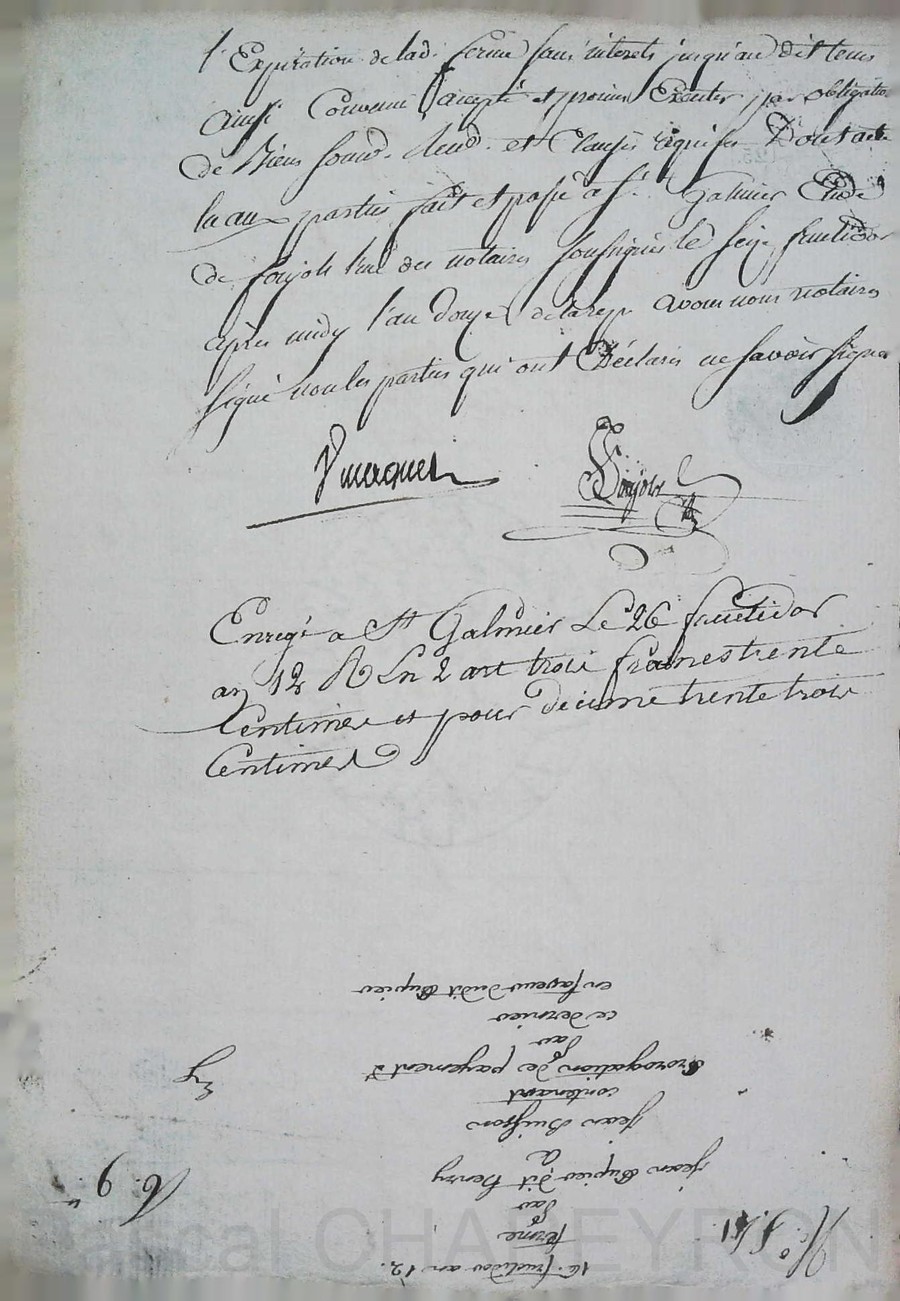 l'Expiration de lad. ferme sans interets jusqu'au dit tems
ainsi Convenu accepté et promis Executer par obligation
de Biens soumis. Rend. et Clauses requises Dont acte
lu aux parties fait et passé a St. Galmier Etude
de Poujols l'un des notaires soussignés le seize fructidor
après midy l'an douze de la rep. avons nous notaires
signé non les parties qui ont Déclarés ne savoir signer
Enregé a St Galmier Le 26 fructidor
an 12 R Ln 2 art trois francs trente
Centimes et pour decime trente trois
Centimes
16. fructidor an 12.
ferme
par
Jean Dupier dit henry
a
Jean Buisson
contenant
Prorogation de payement
par
ce dernier
en faveur dudit Dupier
Pascal CHAPEYRON